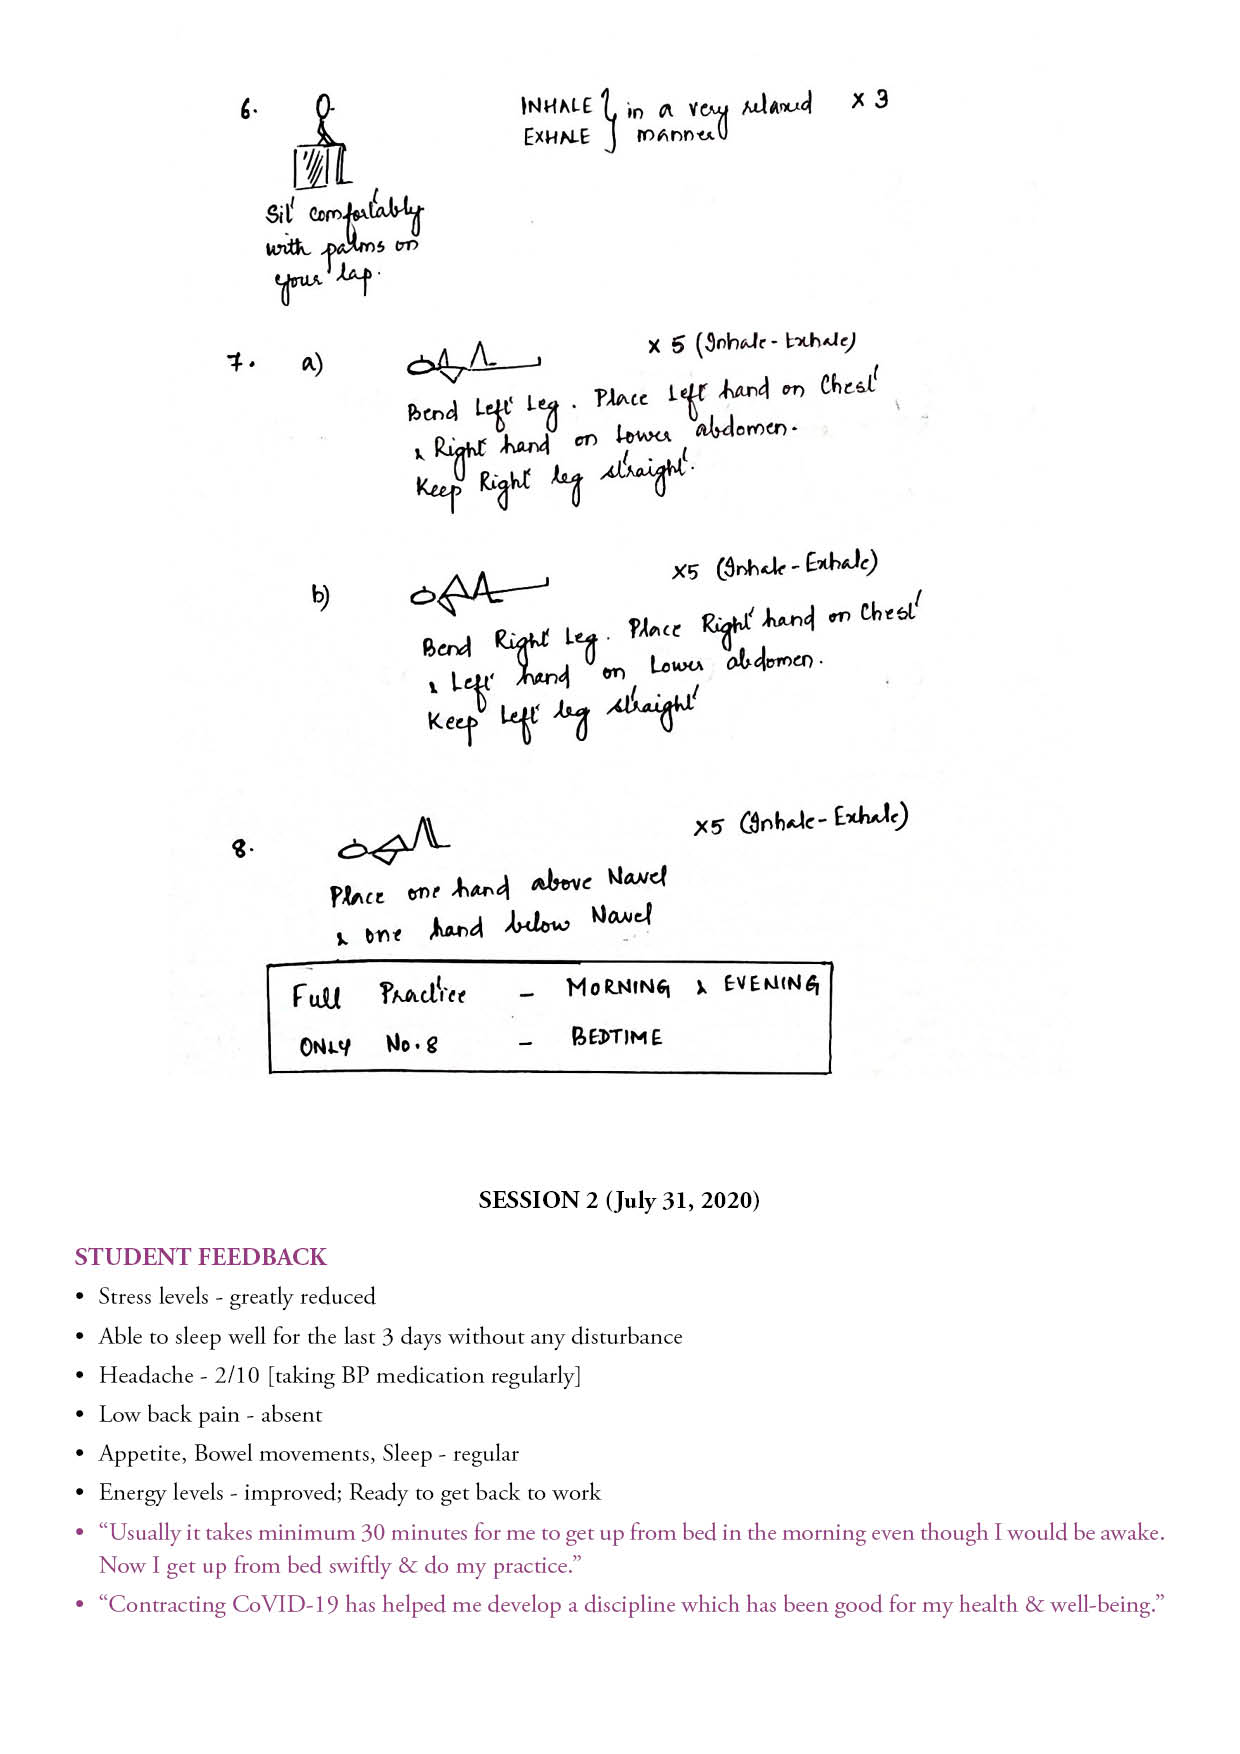 6.
INHALE } in a very relaxed x 3
EXHALE } manner
Sit comfortably
with palms on
your lap.
7. a) x 5 (Inhale - Exhale)
Bend Left Leg. Place Left hand on Chest
& Right hand on Lower abdomen.
Keep Right leg straight.
b) x5 (Inhale - Exhale)
Bend Right Leg. Place Right hand on Chest
& Left hand on Lower abdomen.
Keep Left leg straight
8. x5 (Inhale - Exhale)
Place one hand above Navel
& one hand below Navel
Full Practice - MORNING & EVENING
ONLY No. 8 - BEDTIME
SESSION 2 (July 31, 2020)
STUDENT FEEDBACK
• Stress levels - greatly reduced
• Able to sleep well for the last 3 days without any disturbance
• Headache - 2/10 [taking BP medication regularly]
• Low back pain - absent
• Appetite, Bowel movements, Sleep - regular
• Energy levels - improved; Ready to get back to work
• “Usually it takes minimum 30 minutes for me to get up from bed in the morning even though I would be awake.
Now I get up from bed swiftly & do my practice.”
• “Contracting CoVID-19 has helped me develop a discipline which has been good for my health & well-being.”